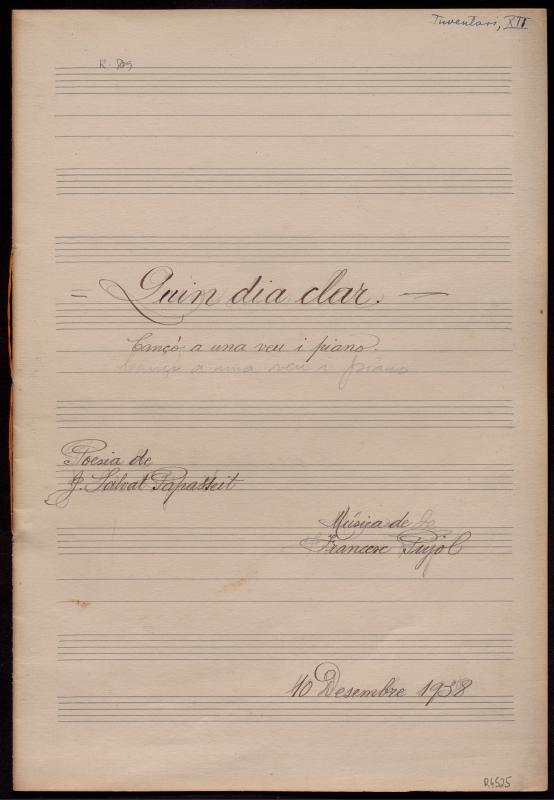 Inventari, XII
= Quin dia clar. —
Cançó a una veu i piano.
Cançó a una veu i piano
Poesia de
J. Salvat Papasseit
Música de
Francesc Pujol
10 Desembre 1938
R.4525